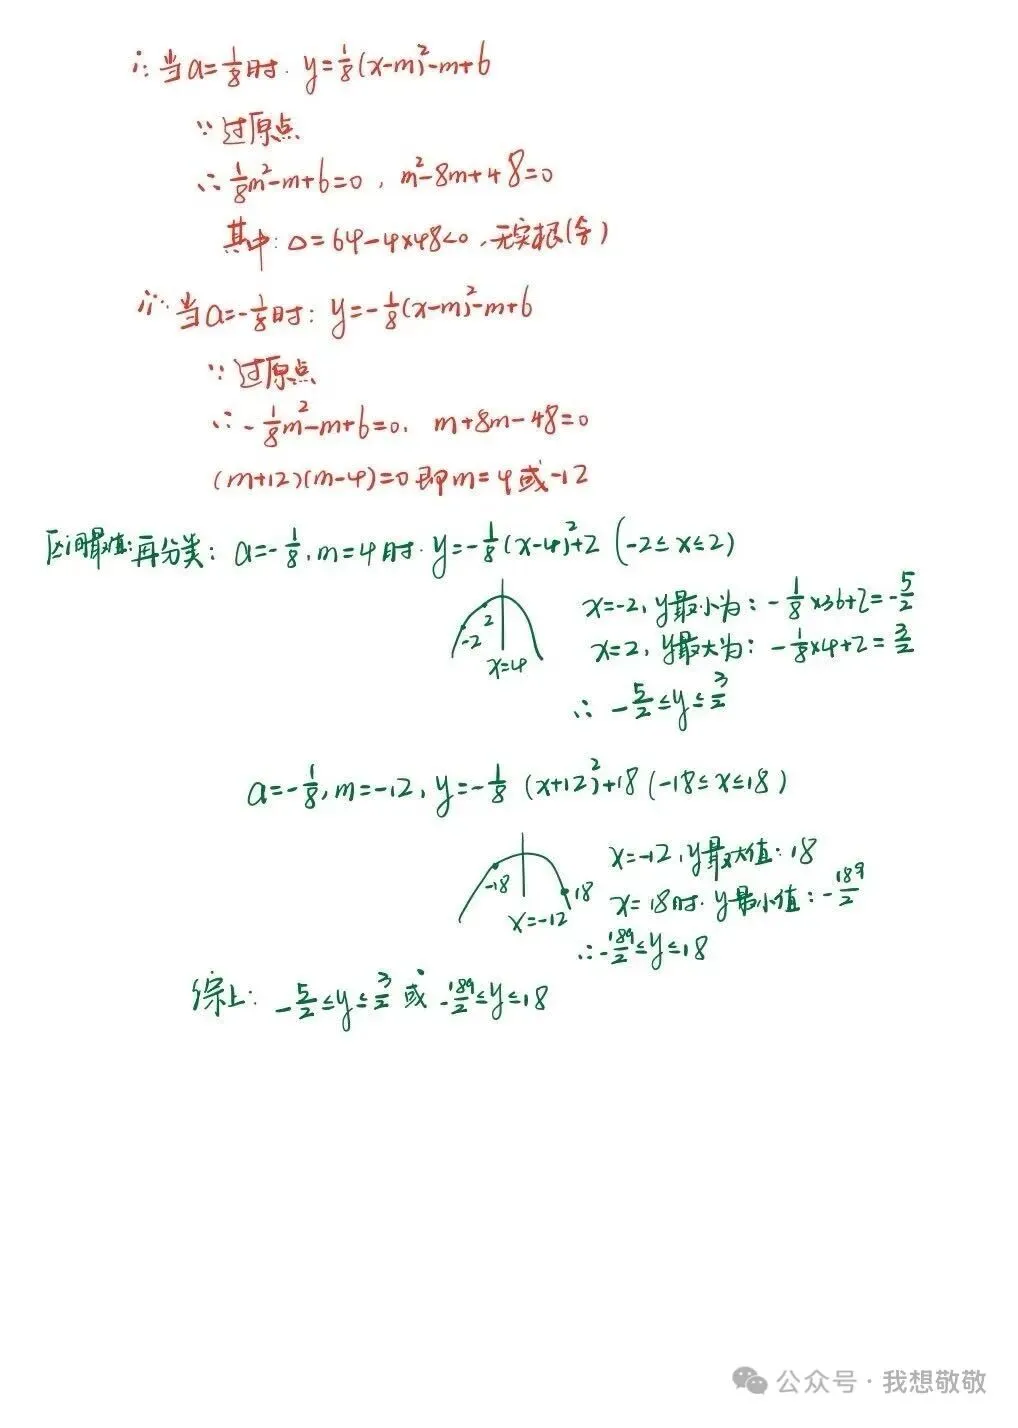 i: 当a=1/8时. y=1/8(x-m)²-m+6
∵过原点
∴ 1/8m²-m+6=0, m²-8m+48=0
其中: △=64-4×48<0, 无实根(舍)
ii: 当a=-1/8时: y=-1/8(x-m)²-m+6
∵过原点
∴ -1/8m²-m+6=0. m+8m-48=0
(m+12)(m-4)=0即m=4或-12
区间最值: 再分类: a=-1/8, m=4时. y=-1/8(x-4)²+2 (-2≤x≤2)
-2 2 x=4
x=-2, y最小为: -1/8×36+2=-5/2
x=2, y最大为: -1/8×4+2=3/2
∴ -5/2≤y≤3/2
a=-1/8, m=-12, y=-1/8 (x+12)²+18 (-18≤x≤18)
-18 18 x=-12
x=-12, y最大值: 18
x=18时. y最小值: -189/2
∴ -189/2≤y≤18
综上: -5/2≤y≤3/2 或 -189/2≤y≤18
公众号·我想敬敬